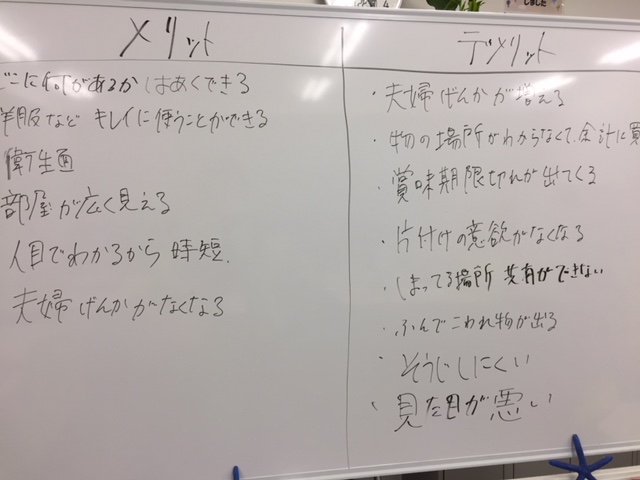 メリット
どこに何があるか はあくできる
洋服など キレイに使うことができる
衛生面
部屋が広く見える
人目でわかるから 時短.
夫婦げんかがなくなる
デメリット
・夫婦げんかが増える
・物の場所がわからなくて、余計に買
・賞味期限切れが出てくる
・片付けの意欲がなくなる
・しまってる場所 共有ができない
・ふんでこわれ物が出る
・そうじしにくい
・見た目が悪い